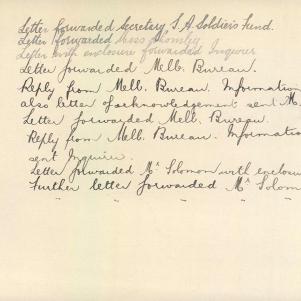 Letter forwarded Secretary S.A. Soldiers Fund.
Letter forwarded Miss
Letter with enclosure forwarded Inquirer
Letter forwarded Melb. Bureau.
Reply from Melb. Bureau. Information
also letter of acknowledgement sent M.
Letter forwarded Melb. Bureau.
Reply from Melb. Bureau. Informatio
sent Inquirer.
Letter forwarded Mr Solomon with enclosu
Further letter forwarded Mr Solom
" " "